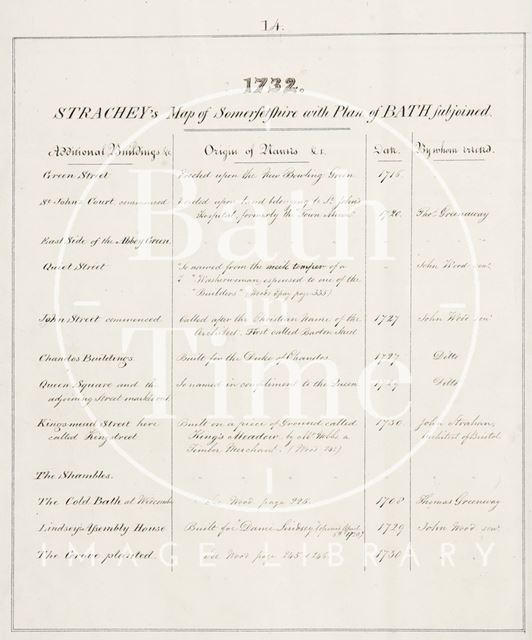 14.
1732.
STRACHEY's Map of Somersetshire with Plan of BATH subjoined.
Additional Buildings &c Origin of Names &c. Date. By whom erected.
Green Street Erected upon the New Bowling Green 1716.
St John's Court, commenced Erected upon Land belonging to St John's
Hospital, formerly the Town Mews 1720. Thos Greenway
East Side of the Abbey Green
Quiet Street So named from the meek temper of a John Wood senr
Washerwoman espoused to one of the
"Builders" (Wood page 333)
John Street commenced Called after the Christian Name of the 1727 John Wood senr
Architect. First called Barton Street
Chandos Buildings. Built for the Duke of Chandos 1727 Ditto
Queen Square and the So named in compliment to the Queen 1729 Ditto
adjoining Street marked out
Kingsmead Street here Built on a piece of Ground called 1730 John Strahan,
called King Street King's Meadow, by Mr Hobbs a Architect of Bristol
Timber Merchant. (Wood 242)
The Shambles.
The Cold Bath at Widcombe Wood page 225. 1708 Thomas Greenway
Lindsey's Assembly House Built for Dame Lindsey (opened April 1729 John Wood senr
6th 1730)
The Grove planted. vide Wood page 245 & 246 1730
Bath
in
Time
IMAGE LIBRARY